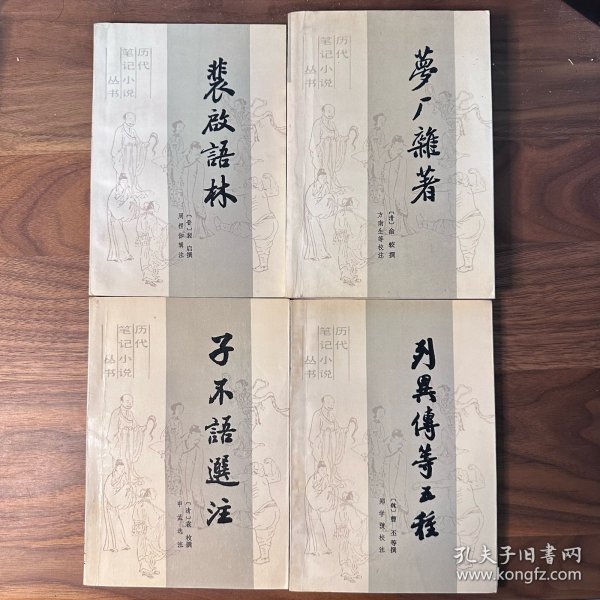 历代
笔记小说
丛书
裴啟語林
〔晋〕裴启撰
周楞伽辑注
历代
笔记小说
丛书
夢厂雜著
〔清〕俞蛟撰
方南生等校注
历代
笔记小说
丛书
子不語選注
〔清〕袁枚撰
申孟选注
历代
笔记小说
丛书
列異傳等五種
〔魏〕曹丕等撰
郑学弢校注
孔夫子旧书网
www.kongfz.com